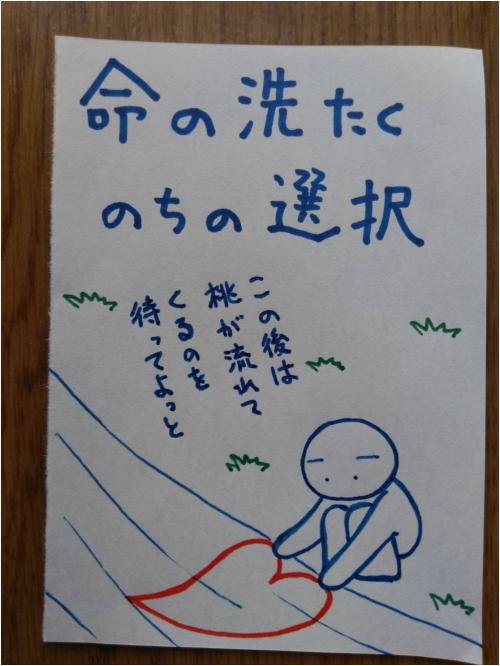 命の洗たく
のちの選択
この後は
桃が流れて
くるのを
待ってよっと